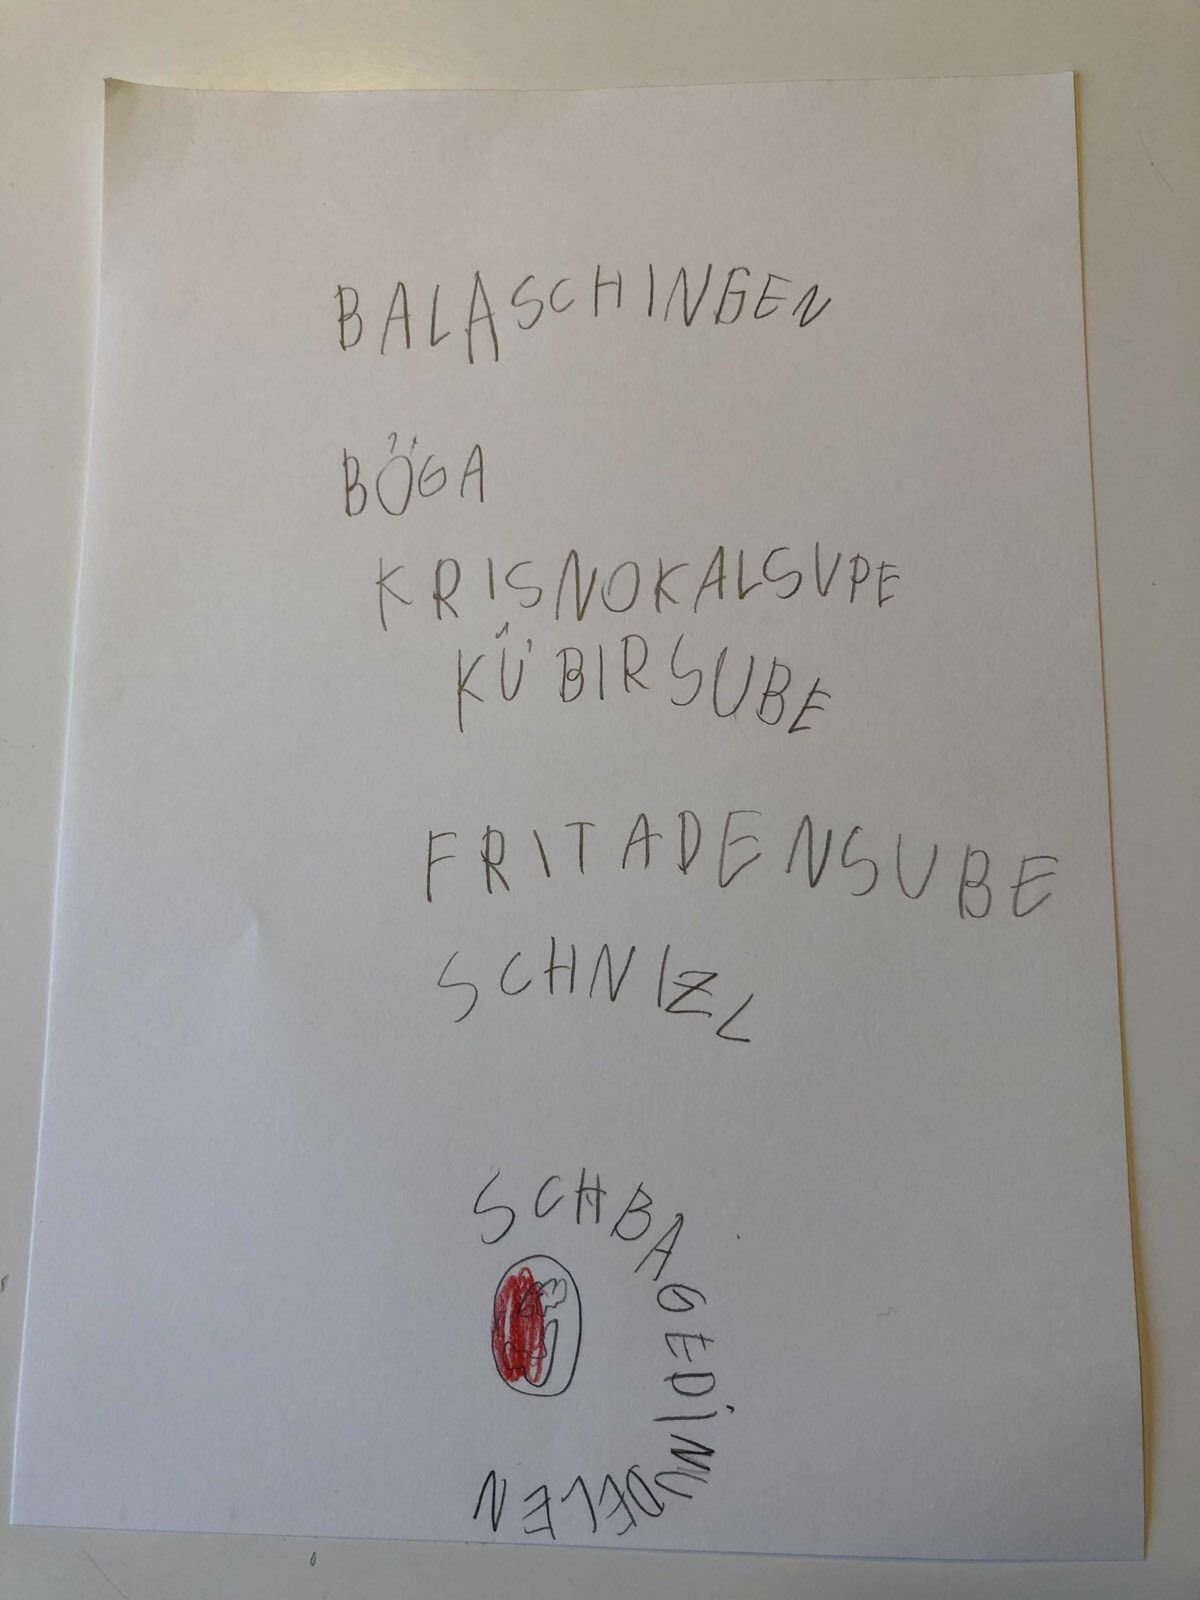 BALASCHINGEN
BÖGA
KRISNOKALSUPE
KÜBIRSUBE
FRITADENSUBE
SCHNIZL
SCHBAGEDINUDELEN